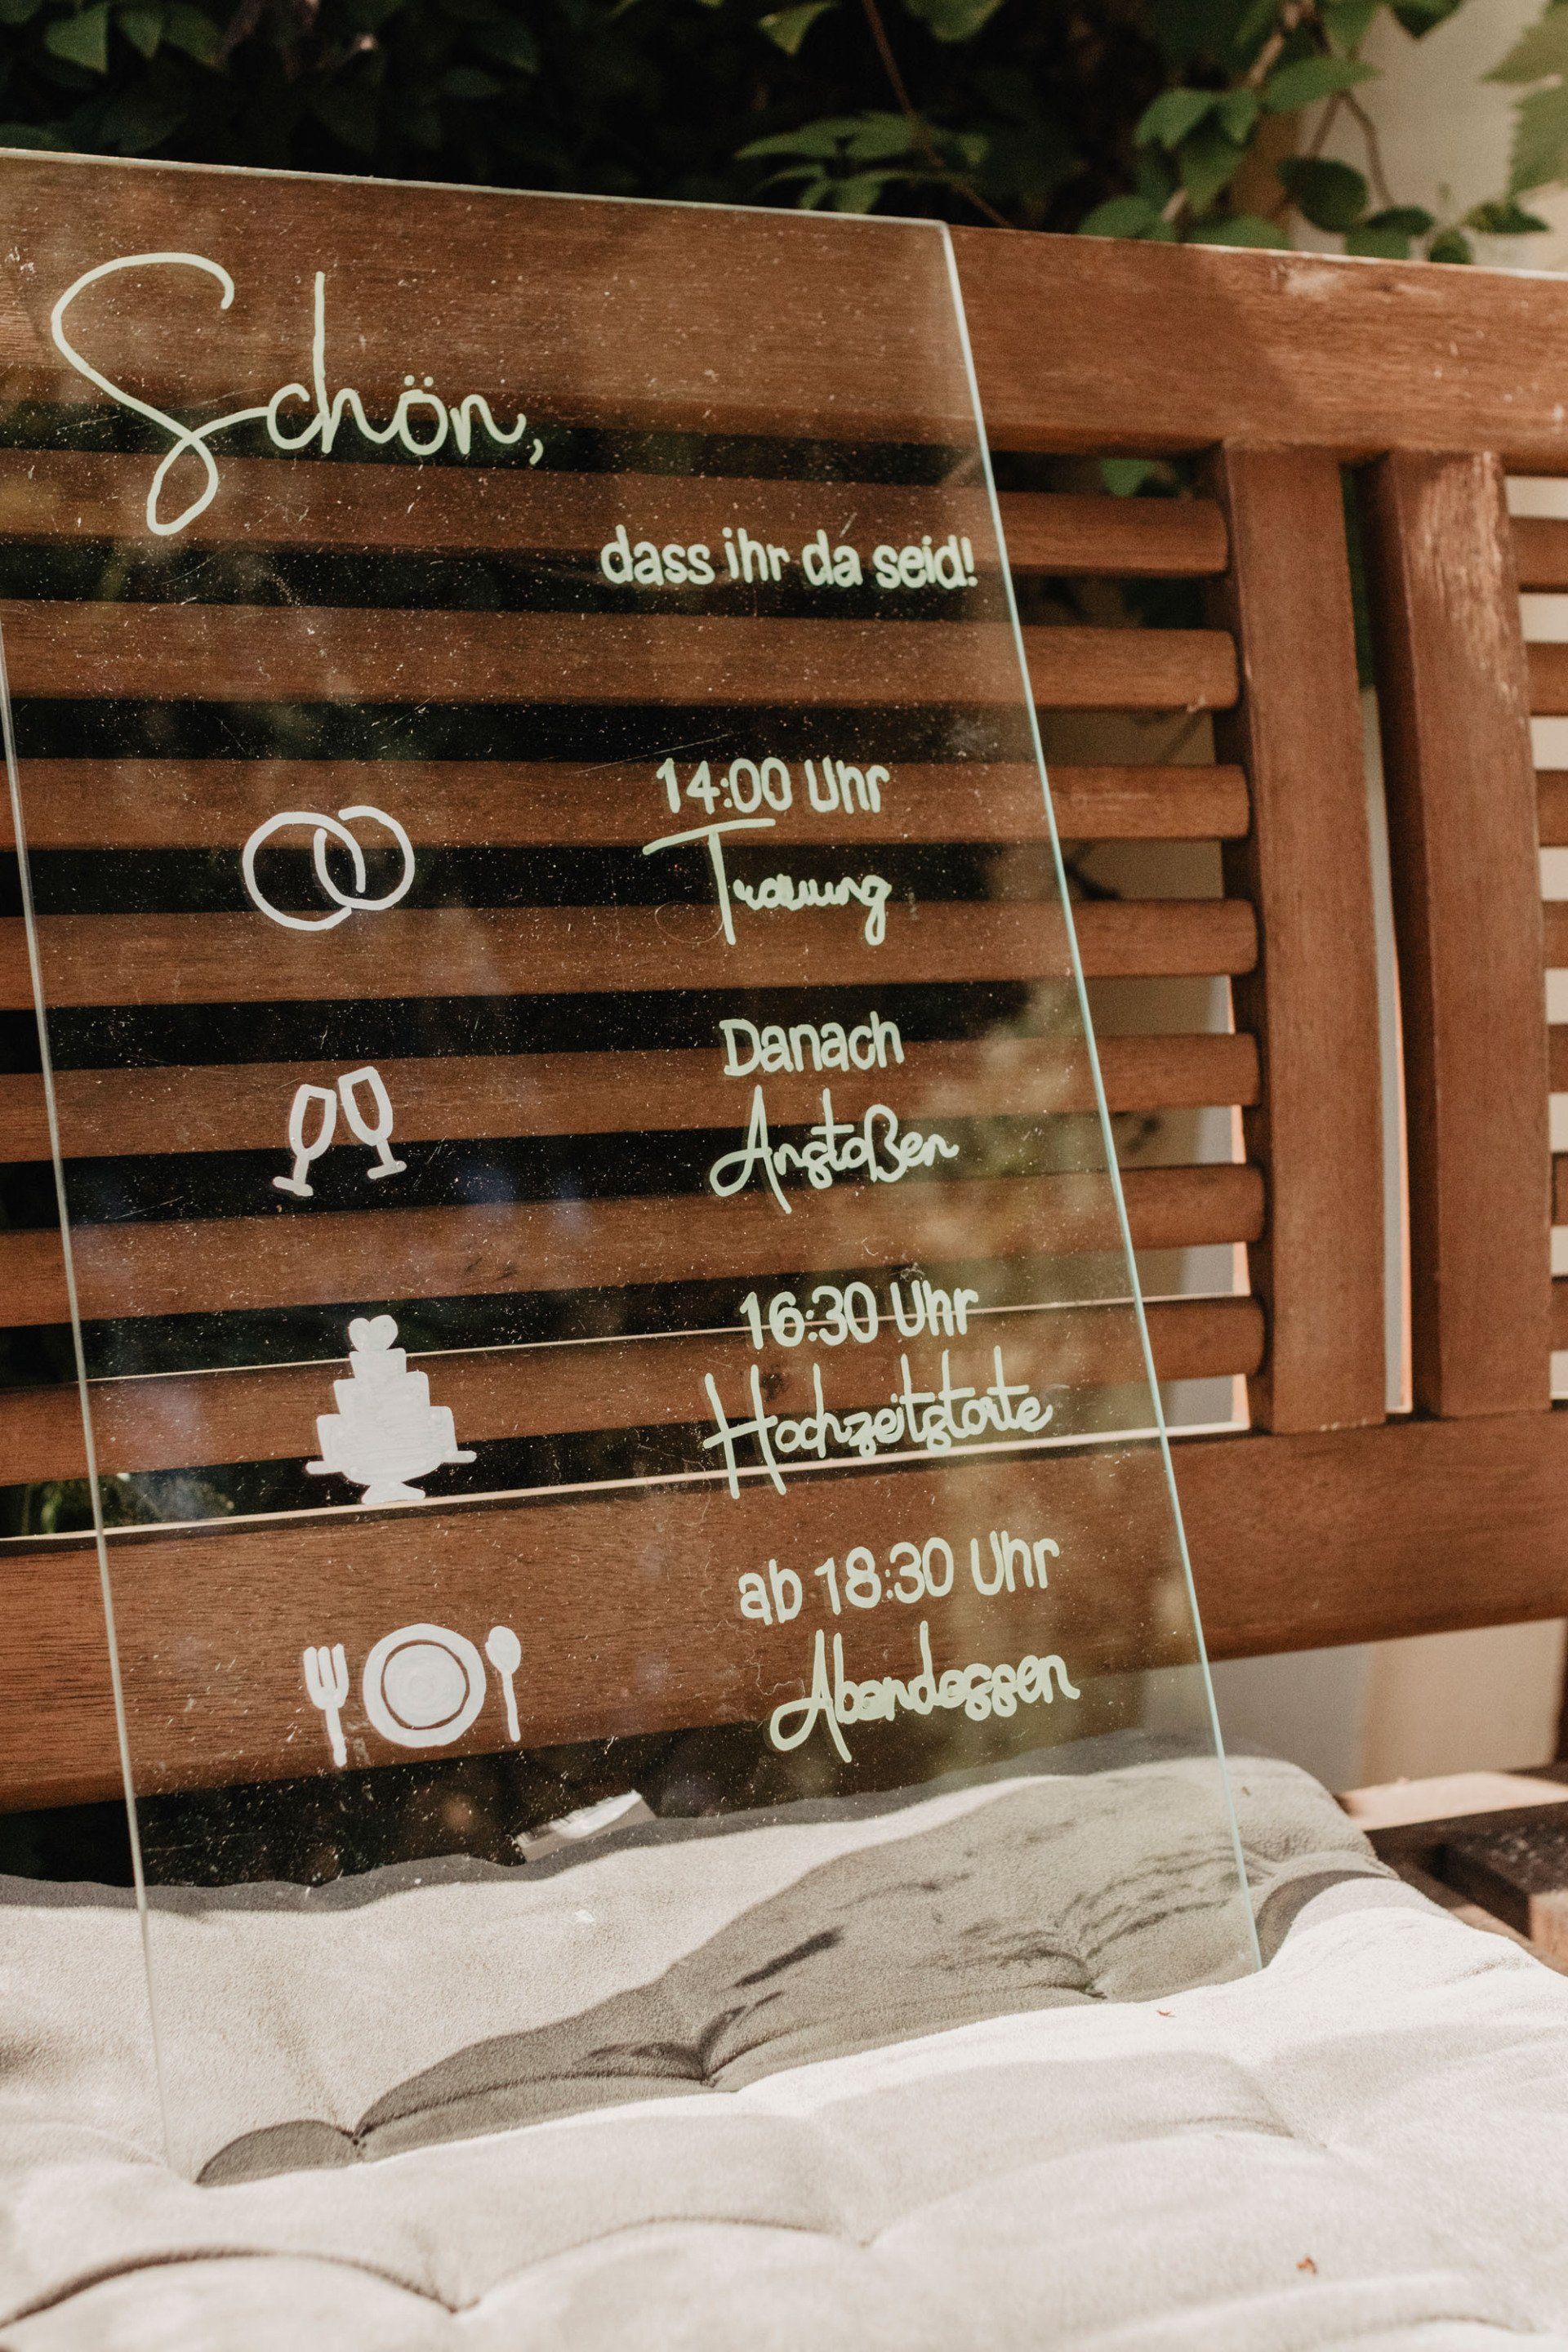 Schön,
dass ihr da seid!
14:00 Uhr
Trauung
Danach
Anstoßen
16:30 Uhr
Hochzeitstorte
ab 18:30 Uhr
Abendessen